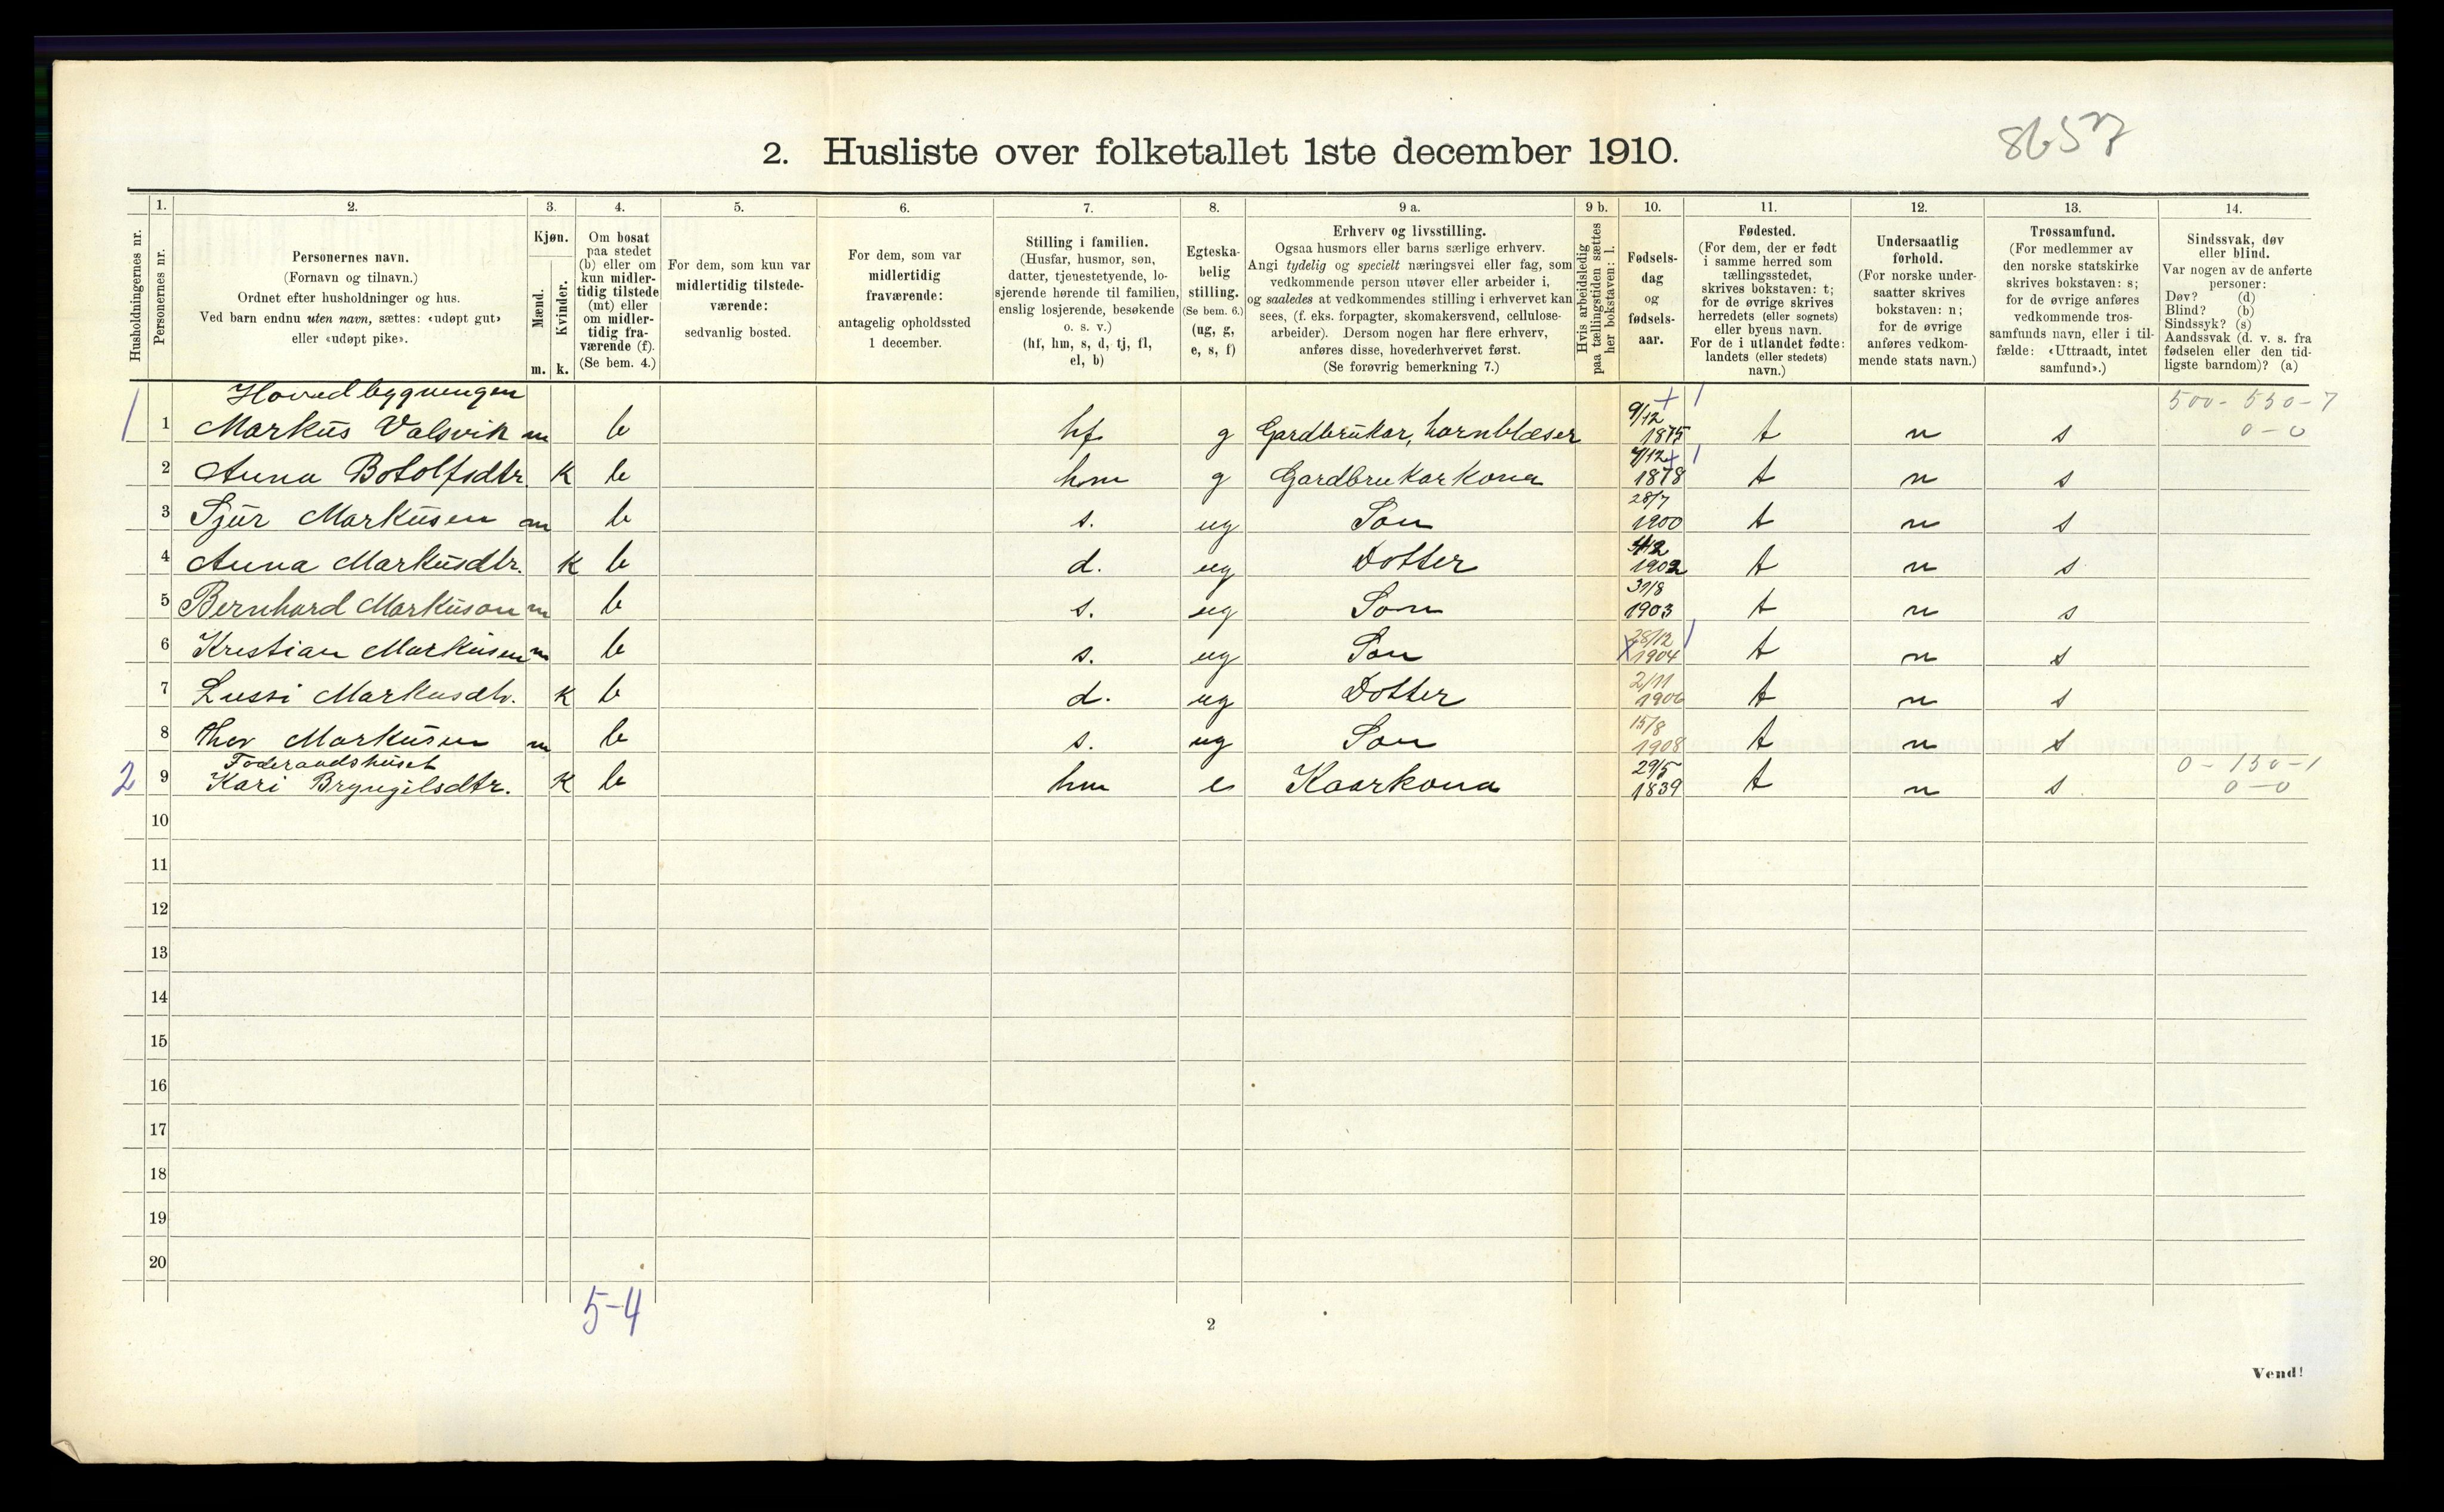 8657
2. Husliste over folketallet 1ste december 1910.
1. 2. 3. 4. 5. 6. 7. 8. 9 a. 9 b. 10. 11. 12. 13. 14.
Husholdningernes nr.
Personernes nr.
Personernes navn.
(Fornavn og tilnavn.)
Ordnet efter husholdninger og hus.
Ved barn endnu uten navn, sættes: «udøpt gut»
eller «udøpt pike».
Kjøn.
Mænd.
Kvinder.
m. k.
Om bosat
paa stedet
(b) eller om
kun midler-
tidig tilstede
(mt) eller
om midler-
tidig fra-
værende (f).
(Se bem. 4.)
For dem, som kun var
midlertidig tilstede-
værende:
sedvanlig bosted.
For dem, som var
midlertidig
fraværende:
antagelig opholdssted
1 december.
Stilling i familien.
(Husfar, husmor, søn,
datter, tjenestetyende, lo-
sjerende hørende til familien,
enslig losjerende, besøkende
o. s. v.)
(hf, hm, s, d, tj, fl,
el, b)
Egteska-
belig
stilling.
(Se bem. 6.)
(ug, g,
e, s, f)
Erhverv og livsstilling.
Ogsaa husmors eller barns særlige erhverv.
Angi tydelig og specielt næringsvei eller fag, som
vedkommende person utøver eller arbeider i,
og saaledes at vedkommendes stilling i erhvervet kan
sees, (f. eks. forpagter, skomakersvend, cellulose-
arbeider). Dersom nogen har flere erhverv,
anføres disse, hovederhvervet først.
(Se forøvrig bemerkning 7.)
Hvis arbeidsledig
paa tællingstiden sættes
her bokstaven: l.
Fødsels-
dag
og
fødsels-
aar.
Fødested.
(For dem, der er født
i samme herred som
tællingsstedet,
skrives bokstaven: t;
for de øvrige skrives
herredets (eller sognets)
eller byens navn.
For de i utlandet fødte:
landets (eller stedets)
navn.)
Undersaatlig
forhold.
(For norske under-
saatter skrives
bokstaven: n;
for de øvrige
anføres vedkom-
mende stats navn.)
Trossamfund.
(For medlemmer av
den norske statskirke
skrives bokstaven: s;
for de øvrige anføres
vedkommende tros-
samfunds navn, eller i til-
fælde: «Uttraadt, intet
samfund».)
Sindssvak, døv
eller blind.
Var nogen av de anførte
personer:
Døv? (d)
Blind? (b)
Sindssyk? (s)
Aandssvak (d. v. s. fra
fødselen eller den tid-
ligste barndom)? (a)
Hovedbygningen 500 - 550 - 7
1 1 Markus Valsvik m b hf g Gardbrukar, hornblæser 9/12 1875 t n s 0 - 0
2 Anna Botolfsdtr. K b hm g Gardbrukarkona 4/12 1878 t n s
3 Sjur Markusen m b s. ug Son 28/7 1900 t n s
4 Anna Markusdtr. K b d. ug Dotter 1902 t n s
5 Bernhard Markuson m b s. ug Son 31/8 1903 t n s
6 Kristian Markusen m b s. ug Son 28/12 1904 t n s
7 Lussi Markusdtr. K b d. ug Dotter 2/11 1906 t n s
8 Markusen m b s. ug Son 15/8 1908 t n s
Föderaadshuset 0 - 150 - 1
2 9 Kari Bryngilsdtr. K b hm e Kaarkona 29/5 1839 t n s 0 - 0
10
11
12
13
14
15
16
17
18
19
20
5-4
2
Vend!